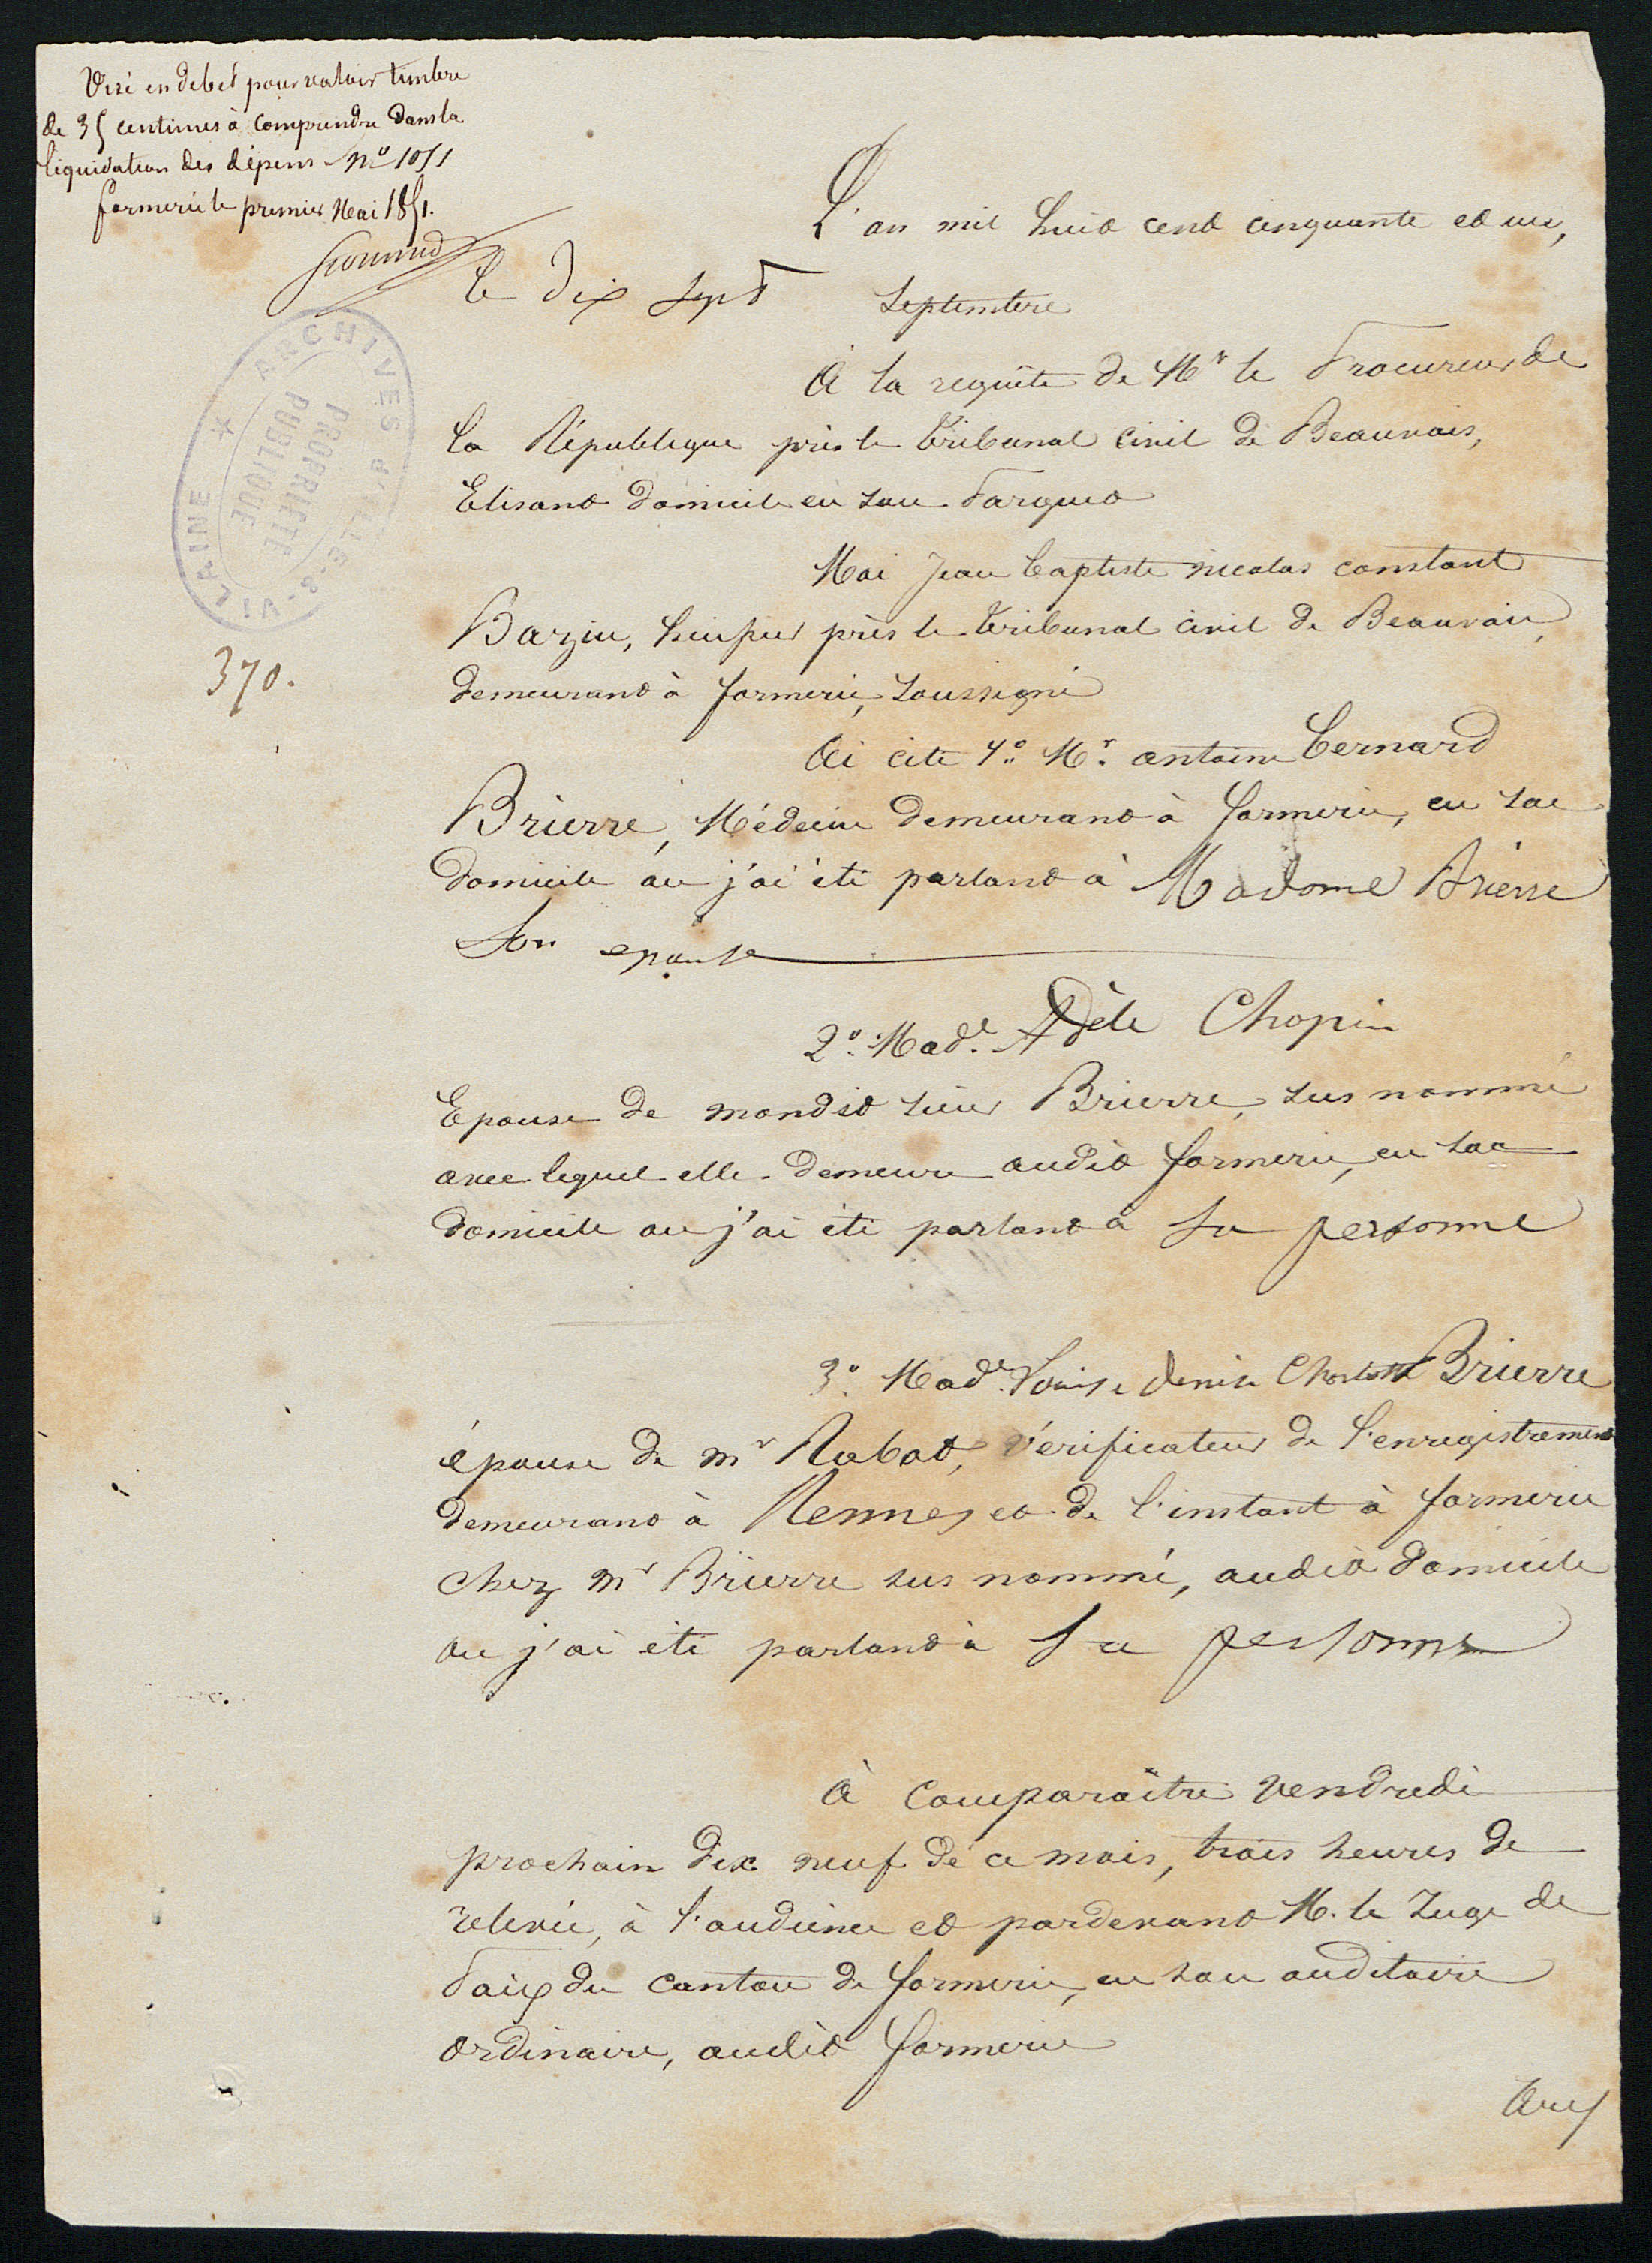 Visé en debet pour valoir timbre
de 35 centimes à comprendre dans la
liquidation des dépens N° 1051
formerie le premier Mai 1851.
ARCHIVES D'ILLE-&-VILAINE
PROPRIÉTÉ
PUBLIQUE
370.
L'an mil huit cent cinquante et un,
le dix sept septembre
A la requête de Mr le Procureur de
la République près le tribunal civil de Beauvais,
Elisant domicile en son Parquet
Moi Jean baptiste nicolas constant
Bazin, huissier près le tribunal civil de Beauvais,
demeurant à formerie, soussigné
Ai cité 1° Mr. antoine bernard
Brierre, Médecin demeurant à formerie, en son
domicile ou j'ai été parlant à Madame Brierre
son epouse
2° Made Adèle Chopin
Epouse de mondit sieur Brierre, sus nommé
avec lequel elle demeure audit formerie, en son
domicile ou j'ai été parlant à sa personne
3° Made Louise denise Charlotte Brierre
épouse de mr Rabot, vérificateur de l'enregistrement
demeurant à Rennes et de l'instant à formerie
chez mr Brierre sus nommé, audit domicile
ou j'ai été parlant à sa personne
A comparaître vendredi
prochain dix neuf de ce mois, trois heures de
relevée, à l'audience et pardevant M. le Juge de
Paix du canton de formerie, en son auditoire
ordinaire, audit formerie